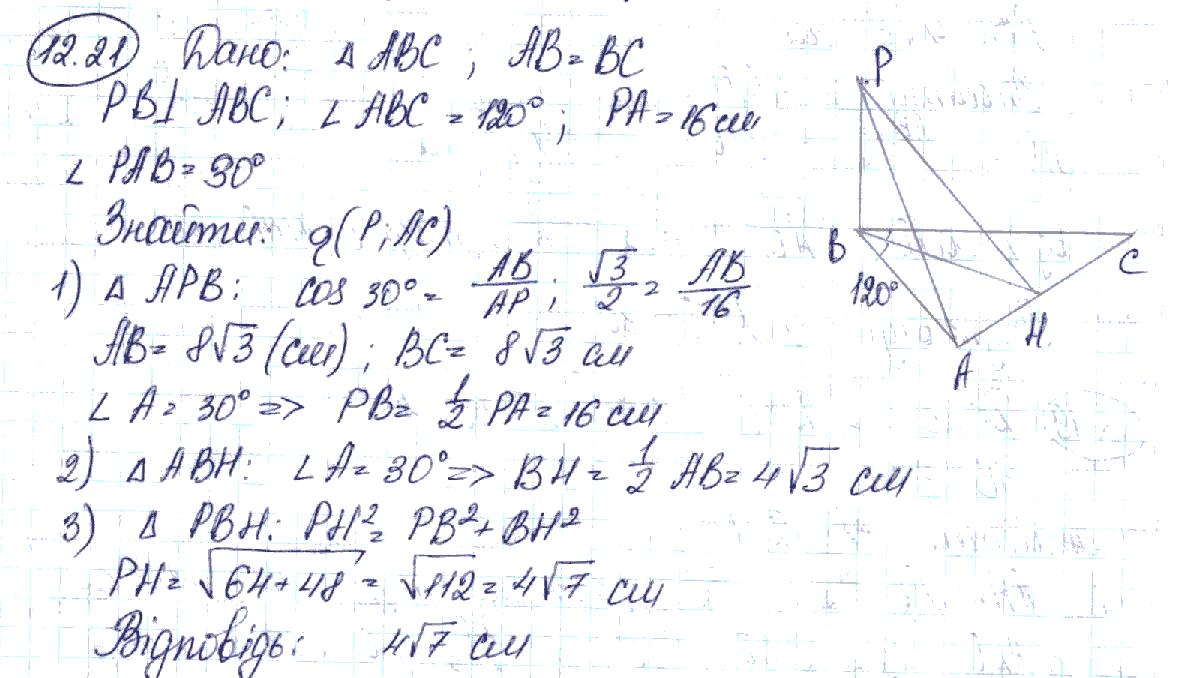 12.21 Дано: Δ ABC ; AB = BC
PB⊥ ABC; ∠ ABC = 120° ; PA = 16 см
∠ PAB = 30°
Знайти: ρ(P; AC)
1) Δ APB: cos 30° = AB/AP ; √3/2 = AB/16
AB = 8√3 (см) ; BC = 8√3 см
∠ A = 30° => PB = 1/2 PA = 16 см
2) Δ ABH: ∠A = 30° => BH = 1/2 AB = 4√3 см
3) Δ PBH: PH² = PB² + BH²
PH = √64+48 = √112 = 4√7 см
Відповідь: 4√7 см
P
B
C
120°
H
A